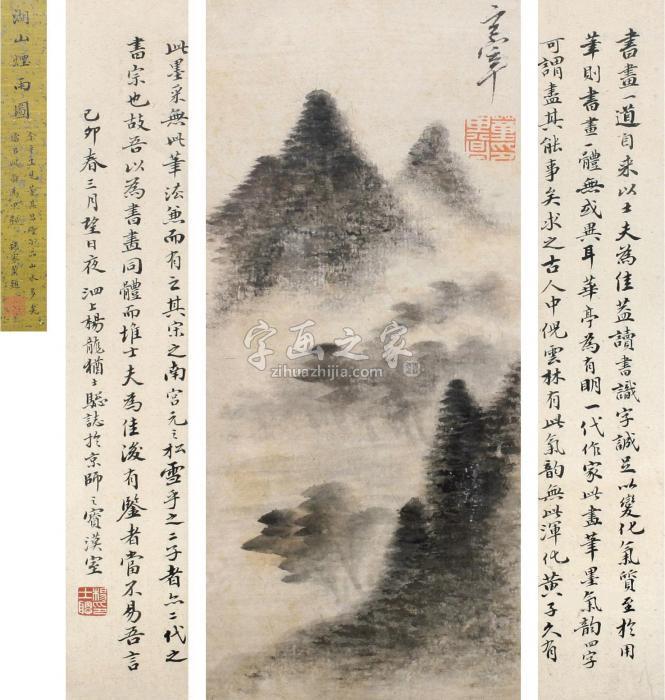 書畫一道自来以士夫為佳蓋讀書識字誠足以變化氣質至於用
筆則書畫一體無或異耳華亭為有明一代作家此畫筆墨氣韵四字
可謂盡其能事矣求之古人中倪雲林有此氣韵無此渾化黃子久有
玄宰
字画之家
zihuazhijia.com
此墨采無此筆法兼而有之其宋之南宮元之松雪乎之二子者亦二代之
書宗也故吾以為書畫同體而惟士夫為佳後有鑒者當不易吾言
己卯春三月望日夜 泗上楊龍猶士驄誌於京師之寶漢室
湖山煙雨圖